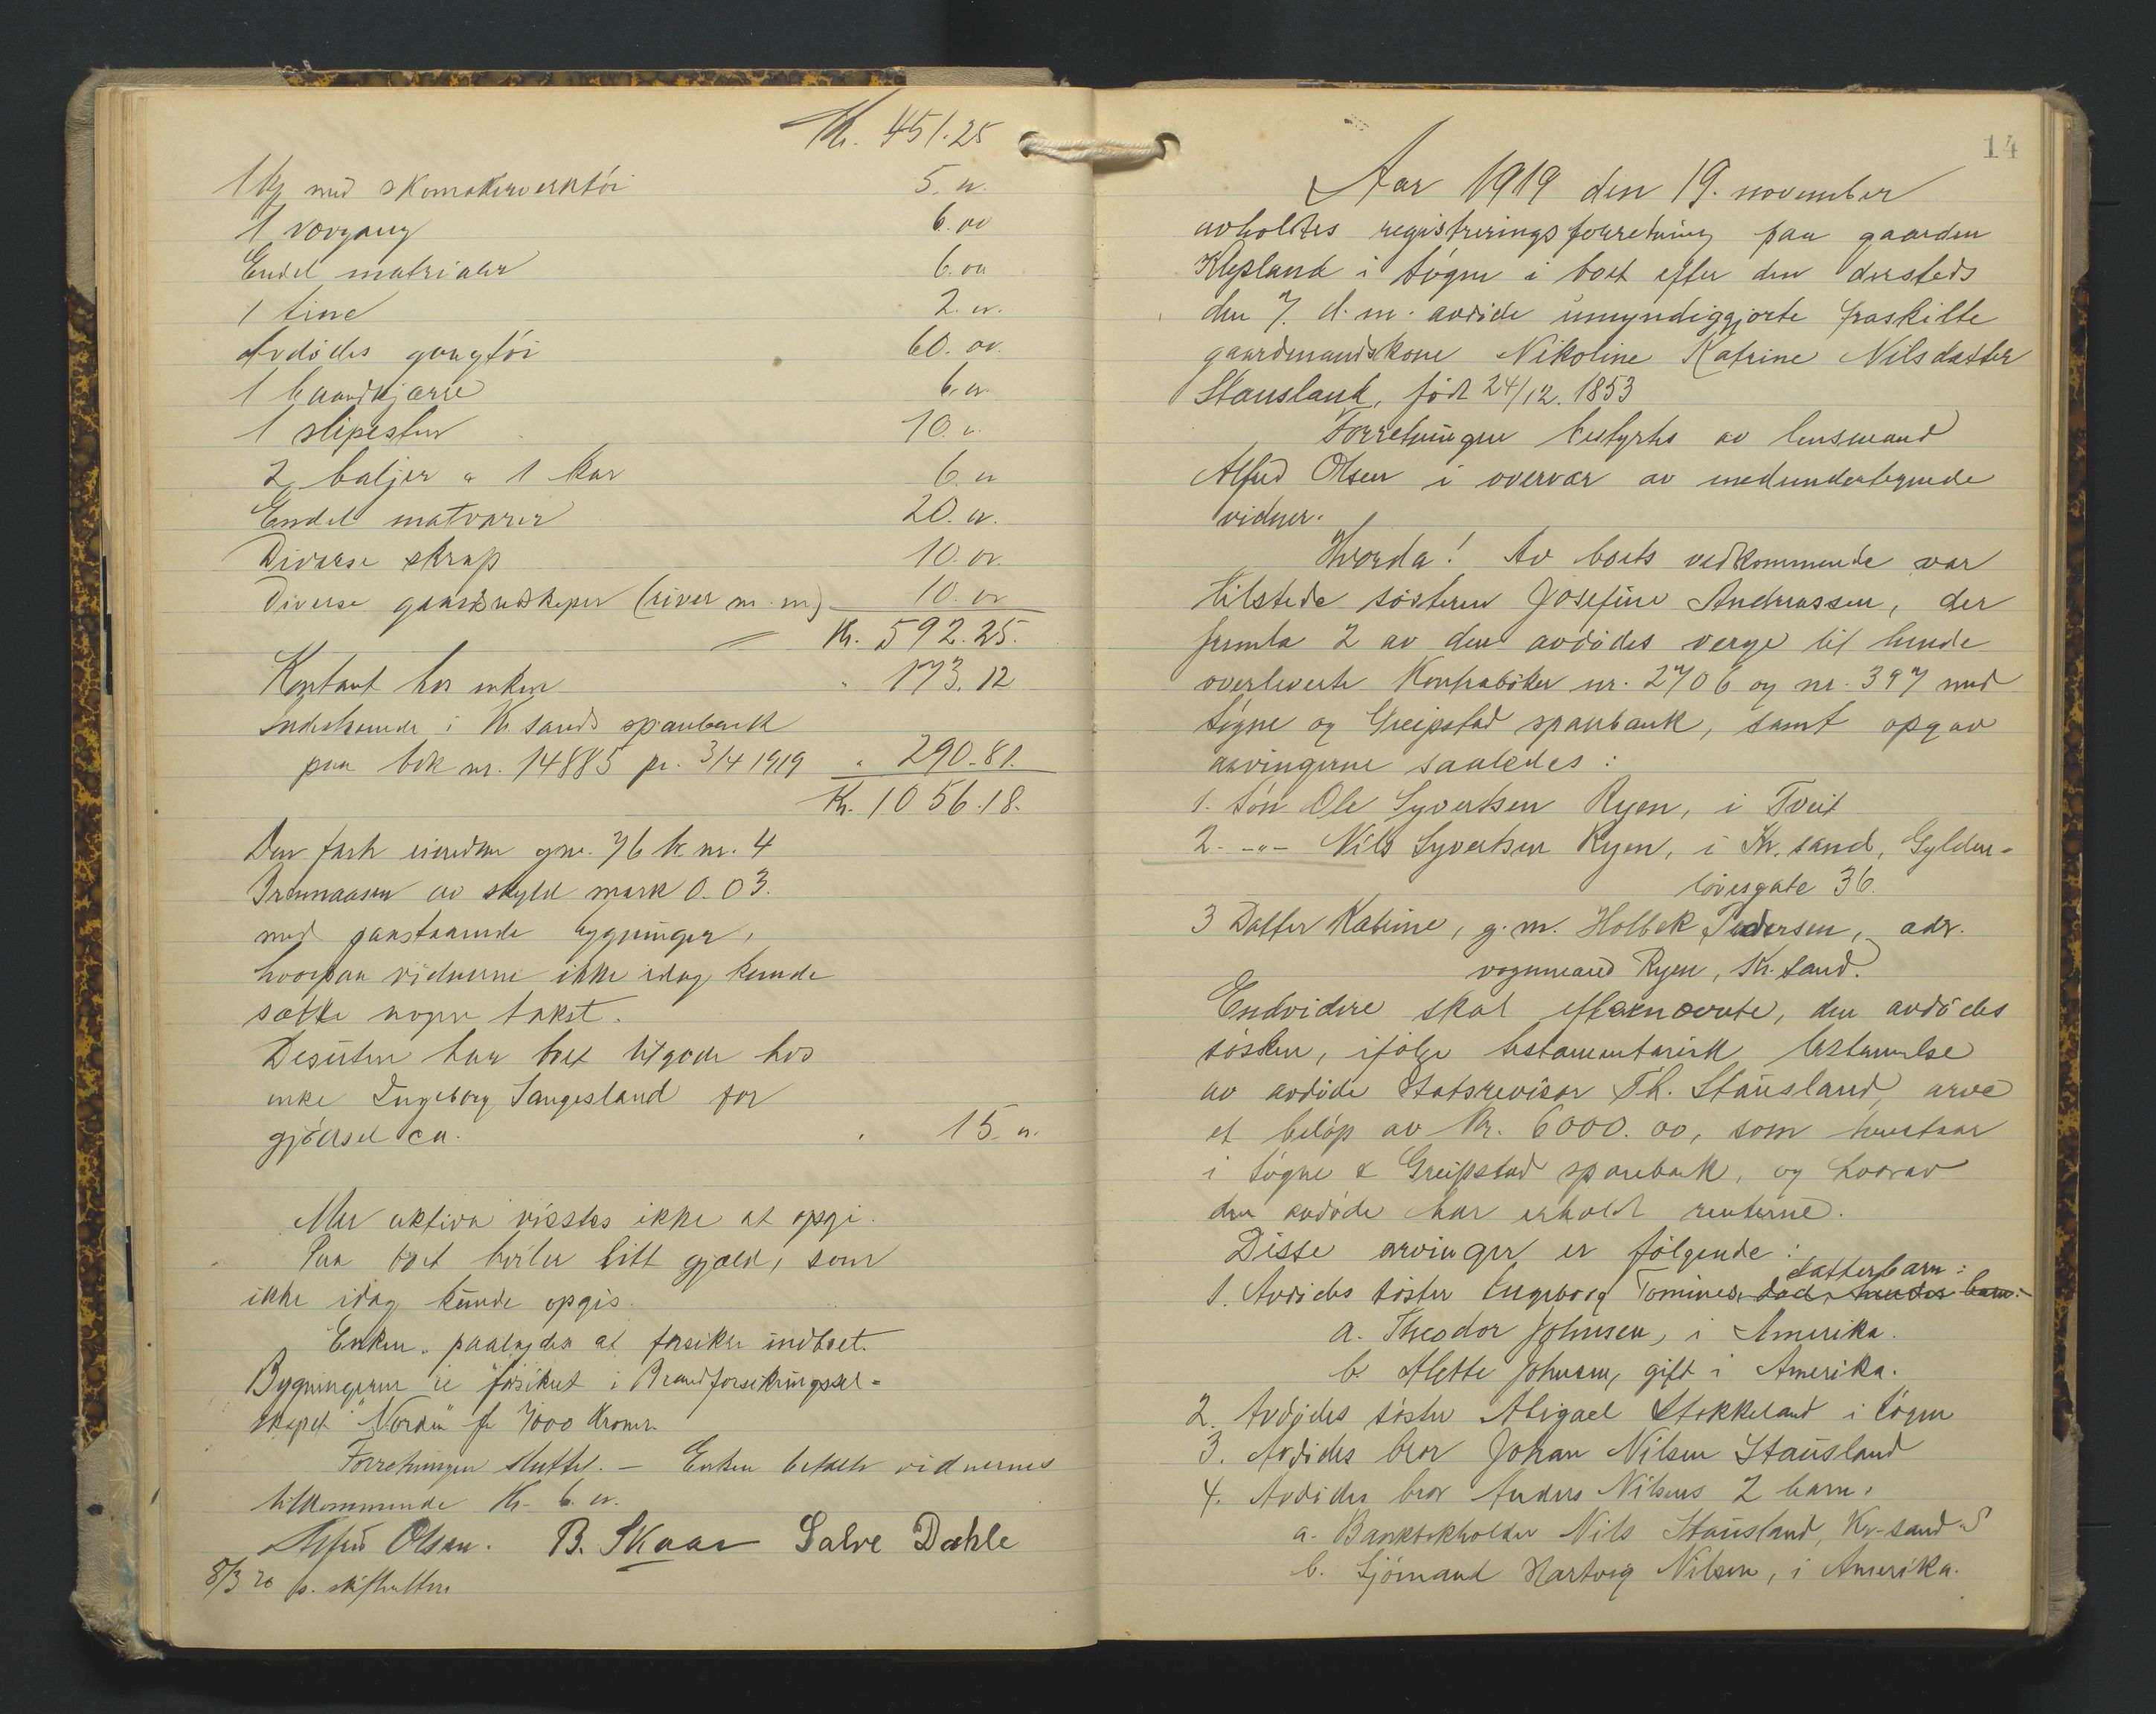 Kr. 451.25
1 kg med skomakerverktöi 5. "
1 vovgang 6. oo
Endel matrialer 6. oo
1 tine 2. "
Avdödes gangtöi 60. oo
1 haandkjærre 6. "
1 slipesten 10. "
2 baljer a 1 kar 6. "
Endel matvarer 20. "
Diverse skrap 10. oo
Diverse gaardsredskaper (river m.m) 10. oo
Kr. 592.25.
Kontant hos enken " 173.12
Indestaaende i Kr.sands sparebank
paa bok nr. 14885 pr. 3/4 1919 " 290.81.
Kr. 1056.18.
Den faste eiendom gnr. 76 br nr. 4
av skyld mark 0.03.
med paastaaende bygninger,
hvorpaa vidnerne ikke idag kunde
sætte nogen takst.
Desuten har boet tilgode hos
enke Ingeborg Sangesland for
gjödsel ca. " 15. "
Mer aktiva visstes ikke at opgi.
Paa boet hviler litt gjæld, som
ikke idag kunde opgis.
Enken paalagdes at forsikre indboet.
Bygningerne er forsikret i Brandforsikringssel=
skapet "Norden" for 7000 Kroner.
Forretningen sluttet. — Enken betalte vidnernes
tilkommende Kr. 6. "
Alfred Olsen. B. Skaar Salve Dahle
8/3 20 s. skifteretten
14
Aar 1919 den 19. november
avholdtes registreringsforretning paa gaarden
Klepland i Sögne i boet efter den dersteds
den 7. d.m. avdöde umyndiggjorte fraskilte
gaardmandskone Nikoline Katrine Nilsdatter
Stausland, född 24/12. 1853
Forretningen bestyrtes av lensmand
Alfred Olsen i overvær av medundertegnede
vidner.
Hvorda! Av boets vedkommende var
tilstede sösteren Josefine Andreassen, der
fremla 2 av den avdödes verge til hende
overleverte Kontraböker nr. 2706 og nr. 397 med
Sögne og Greipstad sparebank, samt opgav
arvingerne saaledes:
1. Sön Ole Syvertsen Ryen, i Tveit
2. -"- Nils Syvertsen Ryen, i Kr.sand, Gylden-
lövesgate 36.
3 Datter Katrine, g.m. Holbek Pedersen, adr.
vognmand Ryen, Kr. sand.
Endvidere skal efternevnte, den avdödes
sösken, ifölge testamentarisk bestemmelse
av avdöde Statsrevisor Th. Stausland, arve
et belöp av Kr. 6000.00, som henstaar
i Sögne & Greipstad sparebank, og hvorav
den avdöde har erholdt renterne.
Disse arvinger er fölgende:
datterbarn:
1. Avdödes söster Ingeborg Tomines död, hendes barn:
a. Theodor Johnsen, i Amerika.
b. Alette Johnsen, gift i Amerika.
2. Avdödes söster Abigael Stokkeland i Sögne
3. Avdödes bror Johan Nilsen Stausland
4. Avdödes bror Anders Nilsens 2 barn:
a. Bankbokholder Nils Stausland, Kr-sand S
b. Sjömand Hartvig Nilsen, i Amerika.